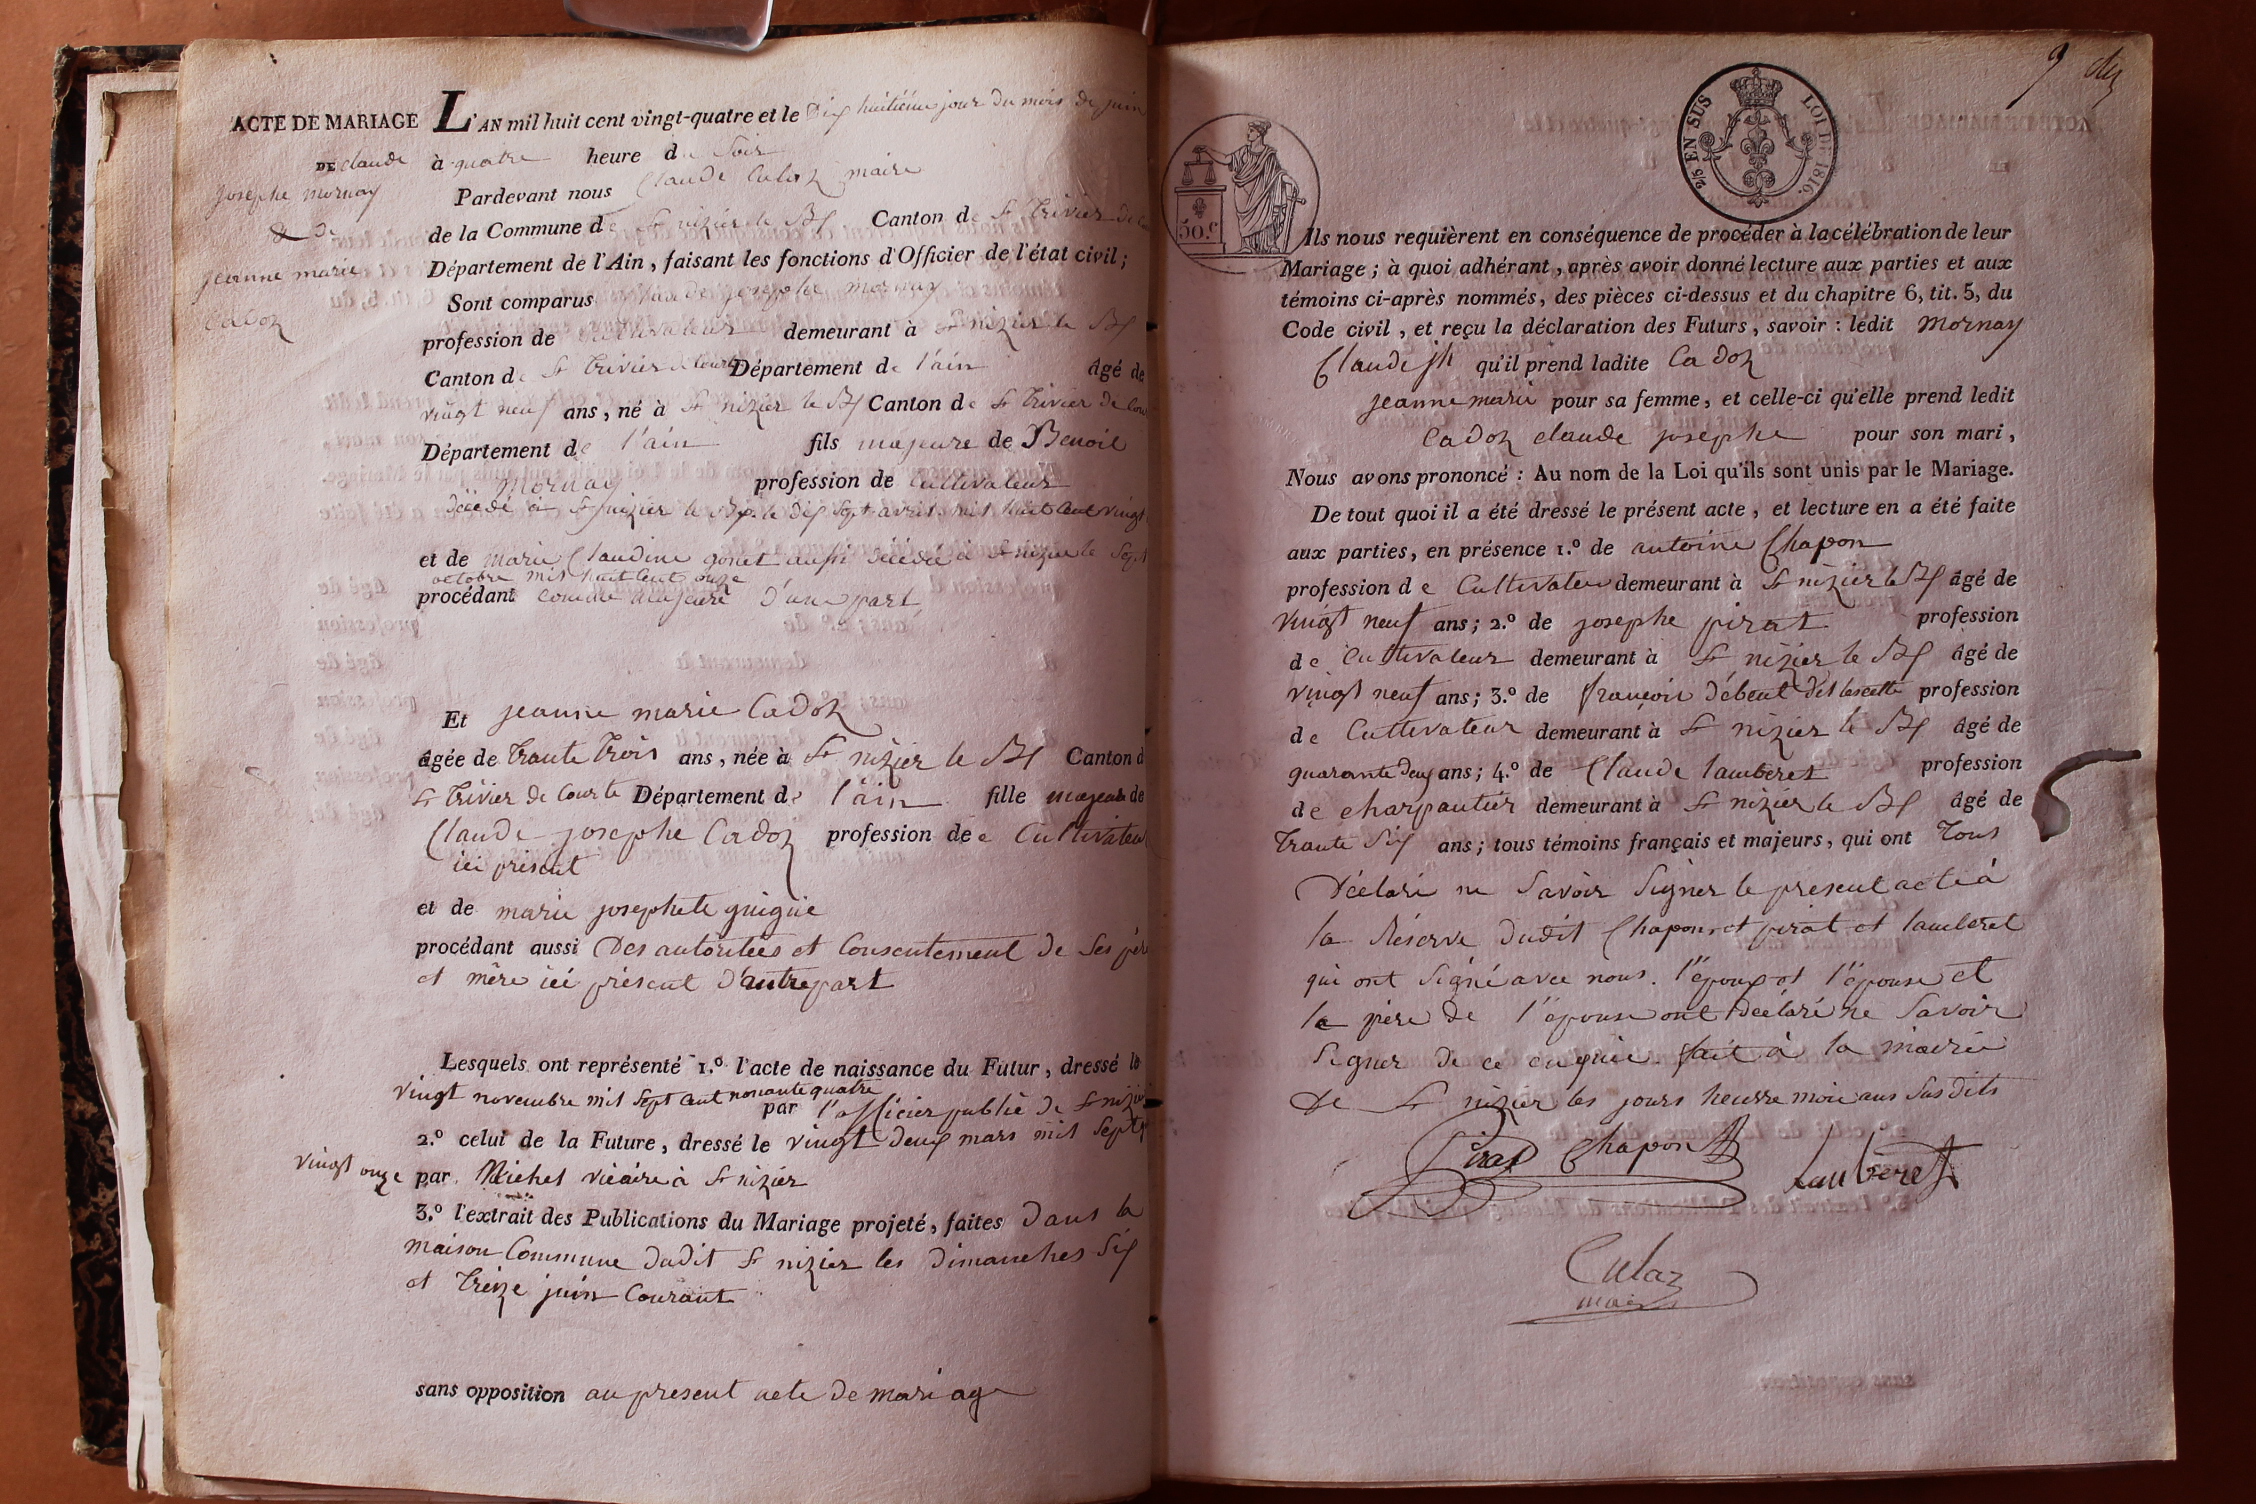 ACTE DE MARIAGE L'AN mil huit cent vingt-quatre et le dix huitième jour du mois de juin
DE claude
josephe mornay
& de
jeanne marie
Cadoz
à quatre heure du soir
Pardevant nous Claude Culaz maire
de la Commune de St nizier le Bx Canton de St Trivier de Cou
Département de l'Ain, faisant les fonctions d'Officier de l'état civil;
Sont comparus Claude josephe mornay
profession de Cultivateur demeurant à St nizier le Bx
Canton de St Trivier de Courte Département de l'ain Agé de
vingt neuf ans, né à St nizier le Bx Canton de St Trivier de Cour
Département de l'ain fils majeure de Benoit
mornay profession de Cultivateur
décédé à St nizier le Bx le dix sept avril mil huit Cent vingt
et de marie Claudine gonet aussi décédée à St nizier le Sept
octobre mil huit Cent onze
procédant comme majeure d'une part
Et jeanne marie Cadoz
âgée de trante trois ans, née à St nizier le Bx Canton d
St Trivier de Courte Département de l'ain fille majeure de
Claude josephe Cadoz profession de e Cultivateur
ici présent
et de marie josephete guigue
procédant aussi Des autoritées et Consentement de Ses pèr
et mère ici présent d'autre part
Lesquels ont représenté 1.º l'acte de naissance du Futur, dressé le
vingt novembre mil sept cent nonante quatre
par l'officier public de St nizier
2.º celui de la Future, dressé le vingt deux mars mil Sept
vingt onze par Michel vicaire à St nizier
3.º l'extrait des Publications du Mariage projeté, faites Dans la
maison Commune dudit St nizier les dimanches Six
et Treize juin Courant
sans opposition au present acte de mariage
9
2/5 EN SUS LOI DE 1816.
50.c
Ils nous requièrent en conséquence de procéder à la célébration de leur
Mariage; à quoi adhérant, après avoir donné lecture aux parties et aux
témoins ci-après nommés, des pièces ci-dessus et du chapitre 6, tit. 5, du
Code civil, et reçu la déclaration des Futurs, savoir: ledit Mornay
Claude jh qu'il prend ladite Cadoz
jeanne marie pour sa femme, et celle-ci qu'elle prend ledit
Cadoz claude josephe pour son mari,
Nous avons prononcé: Au nom de la Loi qu'ils sont unis par le Mariage.
De tout quoi il a été dressé le présent acte, et lecture en a été faite
aux parties, en présence 1.º de antoine Chapon
profession de Cultivateur demeurant à St nizier le Bx âgé de
vingt neuf ans; 2.º de josephe pirat profession
de Cultivateur demeurant à St nizier le Bx âgé de
vingt neuf ans; 3.º de françois débeut dit profession
de Cultivateur demeurant à St nizier le Bx âgé de
quarante deux ans; 4.º de Claude lamberet profession
de charpantier demeurant à St nizier le Bx âgé de
trante Six ans; tous témoins français et majeurs, qui ont Tous
Déclaré ne Savoir Signer le présent acte à
la Réserve dudit Chapon et pirat et lamberet
qui ont Signé avec nous. l'époux et l'épouse et
le père de l'épouse ont déclaré ne Savoir
Signer de ce enquis. fait à la mairie
De St nizier les jours heurre mois ans Susdits
Pirat Chapon Lamberet
Culaz
maire